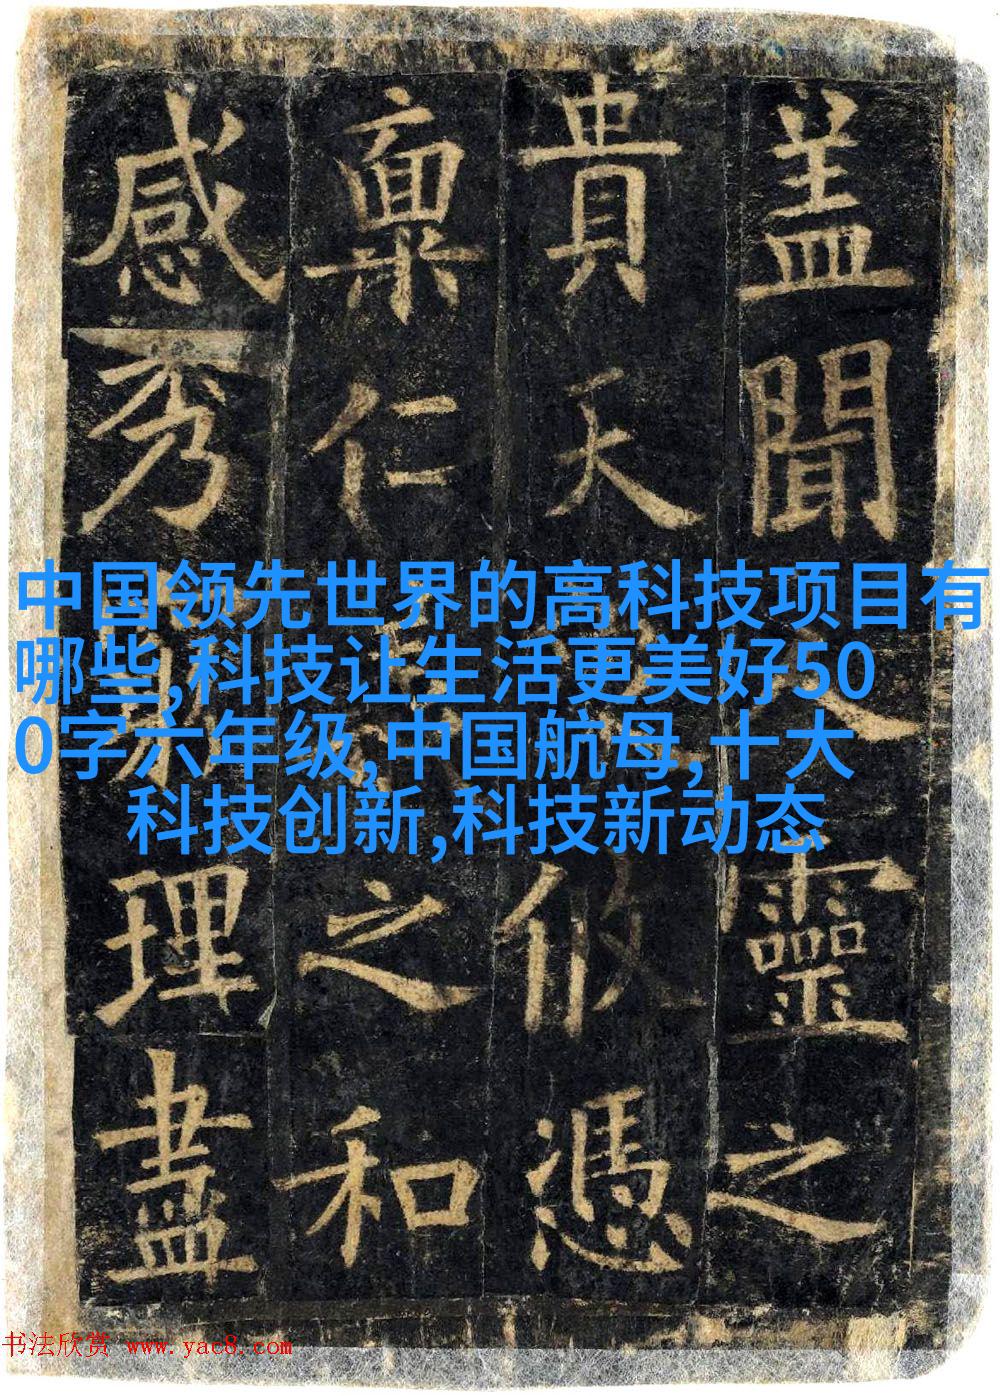 盖聞靈之
貴天攸憑
稟仁之和
感秀理盡
中国领先世界的高科技项目有
哪些,科技让生活更美好50
0字六年级,中国航母,十大
科技创新,科技新动态
书法欣赏 www.yac8.com